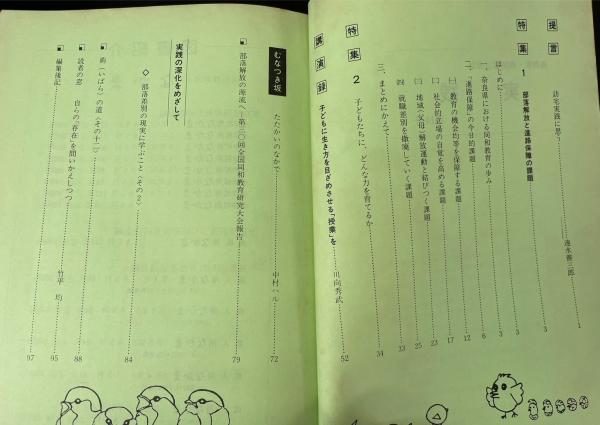 提言
訪宅実践に思う……速水善三郎……1
特集 1 部落解放と進路保障の課題……3
はじめに……3
一、奈良県における同和教育の歩み……6
二、「進路保障」の今日的課題……12
㈠ 教育の機会均等を保障する課題……17
㈡ 社会的立場の自覚を高める課題……23
㈢ 地域(父母)解放運動と結びつく課題……25
㈣ 就職差別を撤廃していく課題……33
三、まとめにかえて……34
特集 2 子どもたちに、どんな力を育てるか
講演録 子どもに生き方を目ざめさせる「授業」を……川向秀武……52
むなつき坂
たたかいのなかで……中村ハル……72
■ 部落解放の源流へ―第三〇回全国同和教育研究大会報告……79
実践の深化をめざして
◇ 部落差別の現実に学ぶこと〈その2〉……84
■ 荊(いばら)の道〈その十二〉……88
■ 読者の窓 自らの「存在」を問いかえしつつ……竹平 均……95
■ 編集後記……97